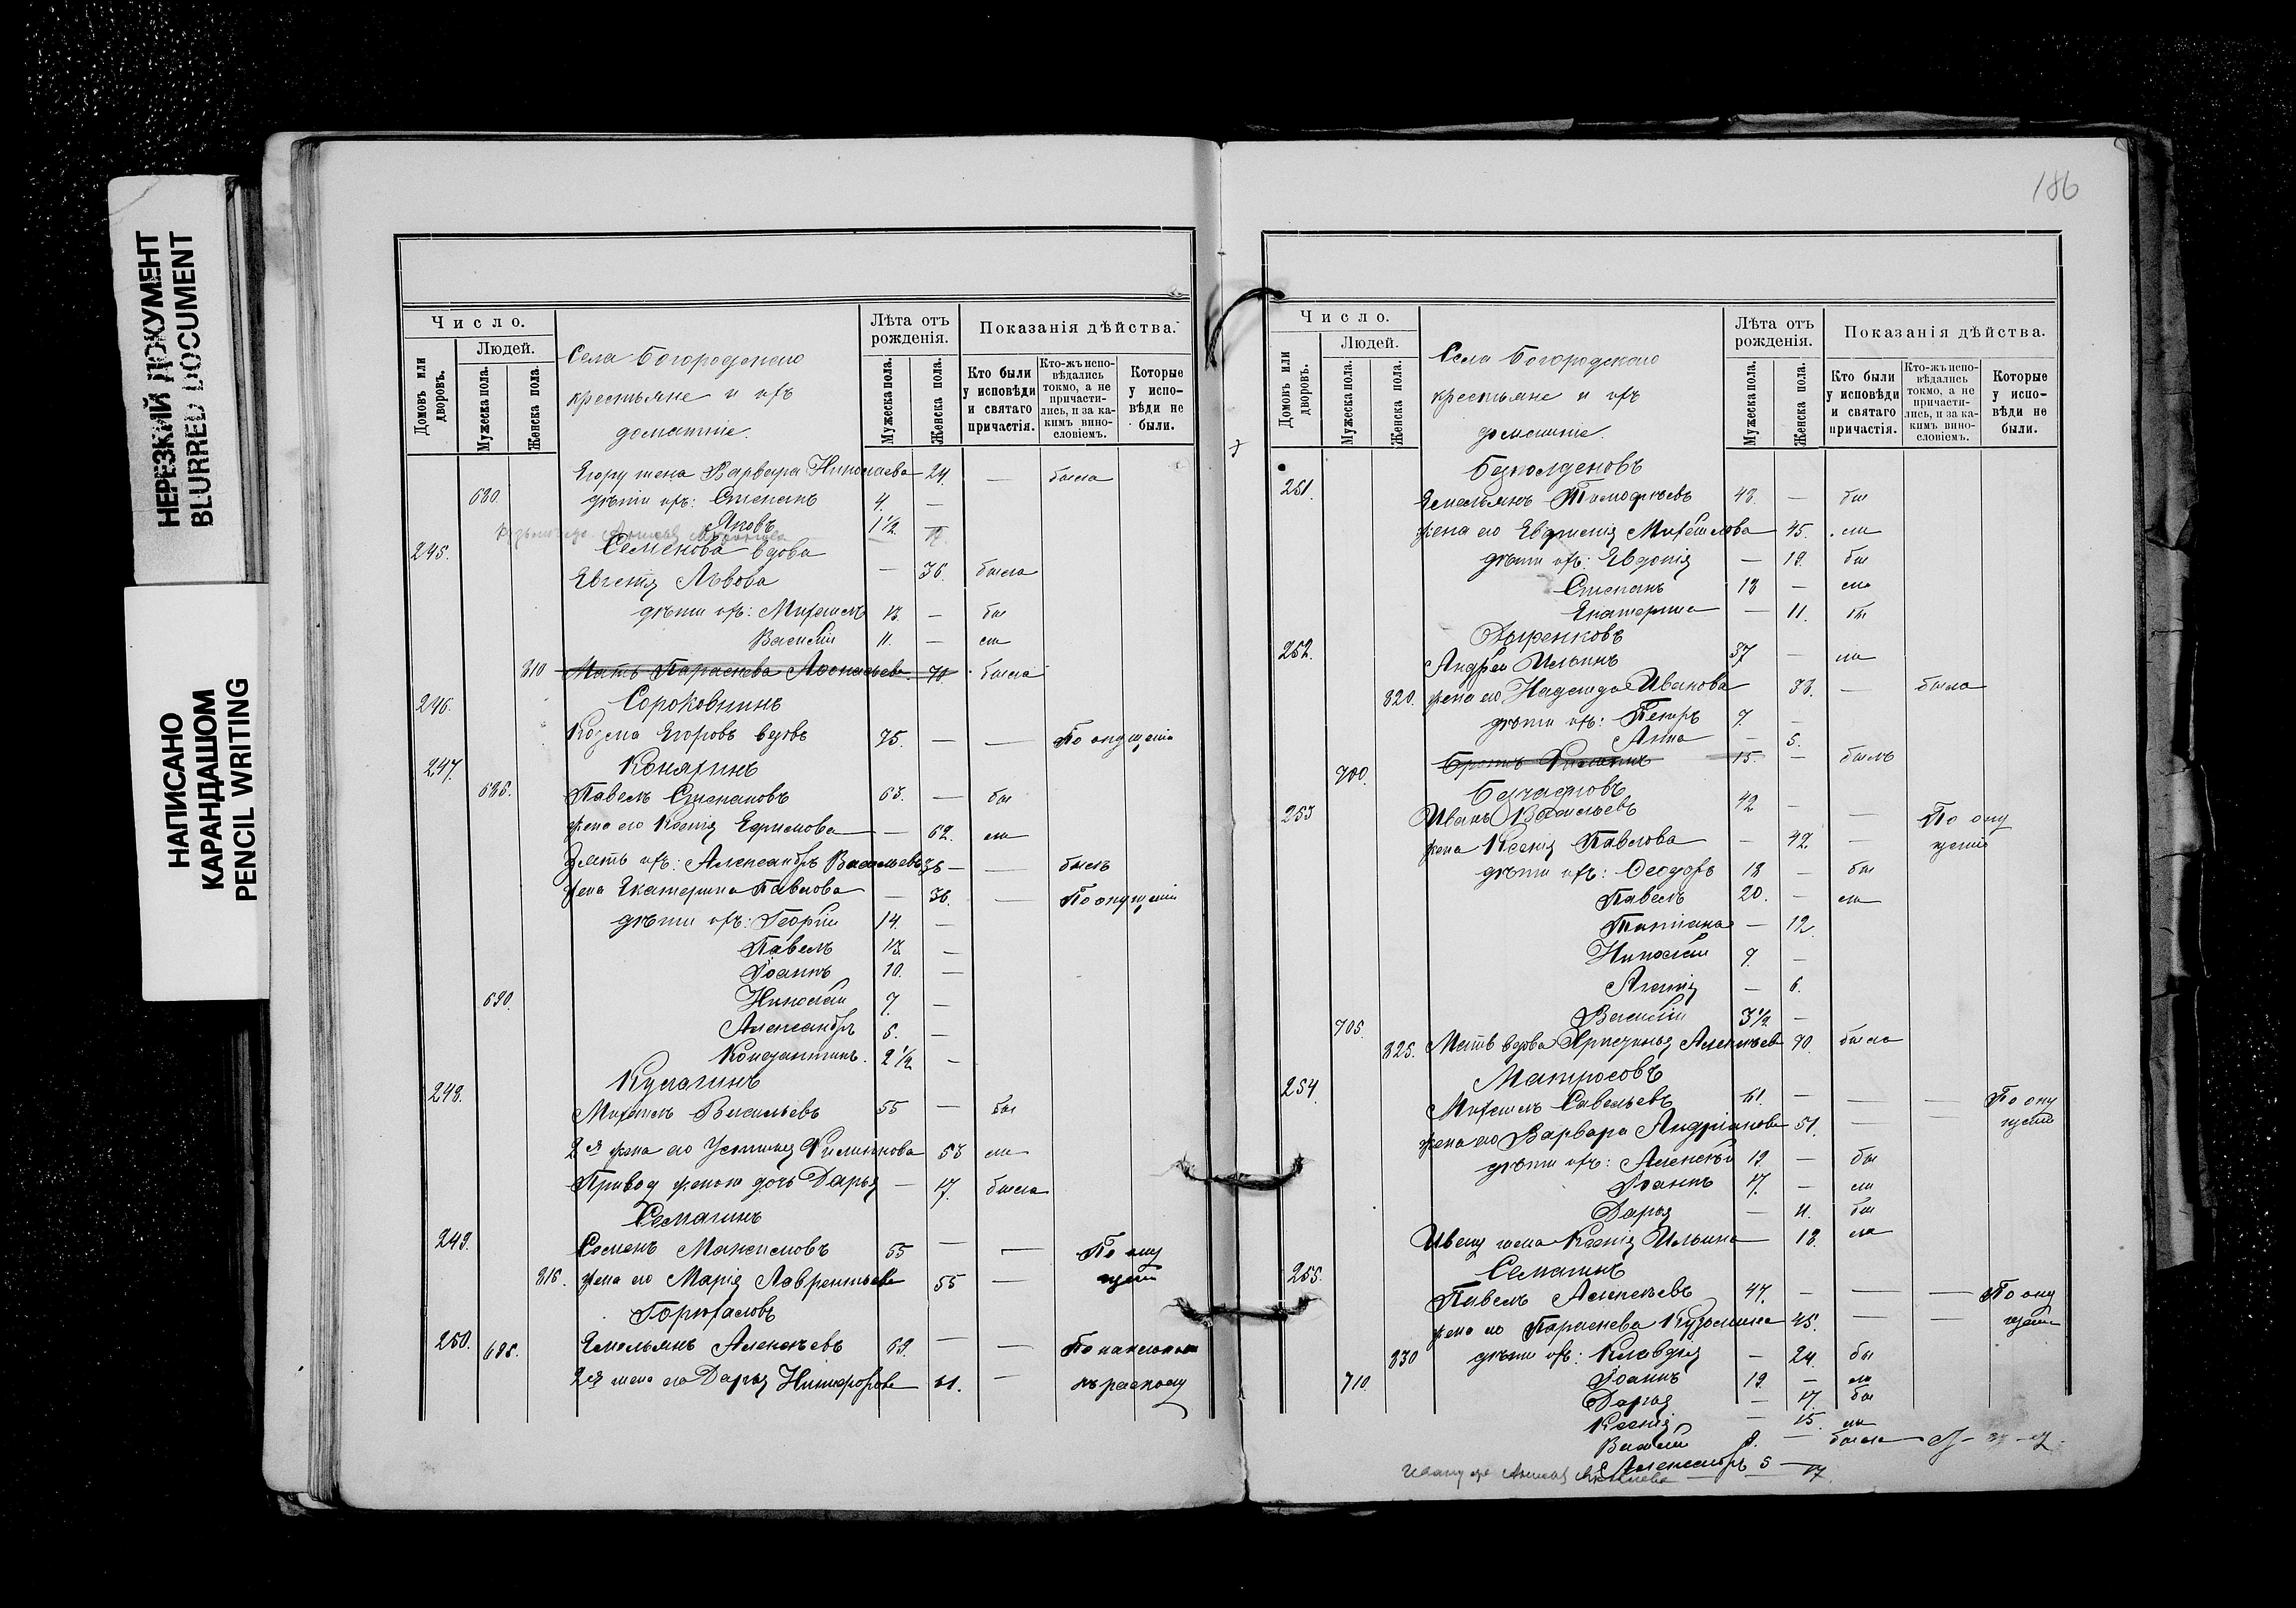 НЕРЕЗКИЙ ДОКУМЕНТ
BLURRED DOCUMENT
НАПИСАНО
КАРАНДАШОМ
PENCIL WRITING
Число.
Людей.
Домовъ или дворовъ.
Мужеска пола.
Женска пола.
Села Богородскаго
крестьяне и ихъ
домашніе.
Лѣта отъ рожденія.
Мужеска пола.
Женска пола.
Показанія дѣйства.
Кто были у исповѣди и святаго причастія.
Кто-жъ исповѣдались токмо, а не причастились, и за какимъ винословіемъ.
Которые у исповѣди не были.
Егору жена Варвара Николаева 24. — была
680. дѣти ихъ: Степанъ 4. —
Яковъ 1 1/2 —
245. Семенова вдова
Львова — 36. была
дѣти ихъ: Михаилъ 13. — бы
Василій 11. — ли
810 Мать Параскева 70. была
246. Сороковнинъ
Козма Егоровъ вдовъ 75. — — По опущенію
247. Конятинъ
685. Павелъ Степановъ 63. — бы
жена его Ксенія Ефимова — 62. ли
Зять ихъ: Александръ Васильевъ 36 — — былъ
жена Екатерина Павлова — 36. — По опущенію
дѣти ихъ: Георгій 14. —
Павелъ 12. —
Іоаннъ 10. —
690. Николай 7. —
Александръ 5. —
Константинъ. 2 1/2 —
248. Кулагинъ
Михаилъ Васильевъ 55 — бы
2я жена его Устинья Филиппова 53 ли
Привод женою дочь Дарья — 17. была
249. Семагинъ
Семенъ Максимовъ 55 — — По опу
815. жена его Марія Лаврентьева 55 — щенію
250. Горюхаловъ
695. Емельянъ Алексѣевъ 69. — — По наклонно
2я жена его Дарья Никифорова 61. — къ расколу
186
Число.
Людей.
Домовъ или дворовъ.
Мужеска пола.
Женска пола.
Села Богородскаго
крестьяне и ихъ
домашніе.
Лѣта отъ рожденія.
Мужеска пола.
Женска пола.
Показанія дѣйства.
Кто были у исповѣди и святаго причастія.
Кто-жъ исповѣдались токмо, а не причастились, и за какимъ винословіемъ.
Которые у исповѣди не были.
251.
Емельянъ Тимофѣевъ 48 — бы
жена его Евфимія Михайлова 45. ли
дѣти ихъ: Евдокія — 19. бы
Степанъ 13 — ли
Екатерина — 11. бы
252.
Андрей Ильинъ 37 — ли
820. жена его Надежда Ивановa 33. — была
дѣти ихъ: Петръ 7. —
Анна — 5.
700. Братъ Филиппъ 15. — былъ
253
Иванъ Васильевъ 42 — — По опу
жена Ксенія Павлова — 42 — щенію
дѣти ихъ: Ѳеодоръ 18 — бы
Павелъ 20. — ли
Татіана — 12.
Николай 9. —
— 6.
705. Василій 3 1/2 —
825. Мать вдова 70. была
254. Матросовъ
Михаилъ Савельевъ 61. — — — По опу
жена его Варвара Андріанова 51. — щенію
дѣти ихъ: Алексѣй 19. — бы
Іоаннъ 17. — ли
Дарья — 11. бы
Ивану жена Ксенія Ильина 18. ли
255. Семагинъ
Павелъ Алексѣевъ 47. — — — По опу
жена его Параскева Кузьмина 45. — — щенію
830 дѣти ихъ: Клавдія — 24. бы
710. Іоаннъ 19. — ли
Дарья — 17. бы
Ксенія — 15. ли
Василій — была
Александръ 5 —